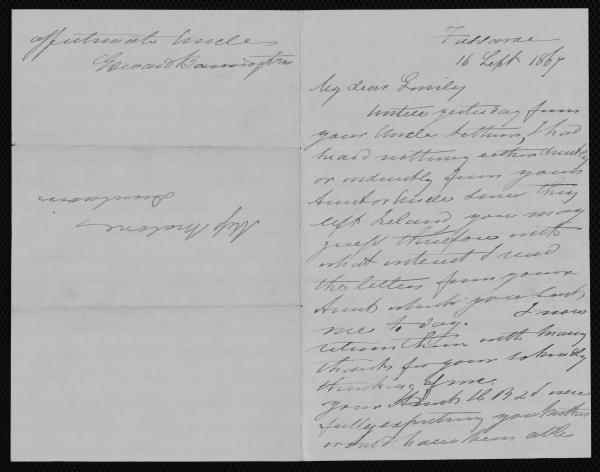 Fassaroe
16 Sept 1867
My dear Emily
Until yesterday from
your Uncle I had
heard nothing either directly
or indirectly from your
Aunt or Uncle since they
left Ireland you may
guess therefore with
what interest I read
the letters from your
Aunt which you sent
me to day. I now
return them with many
thanks for your so kindly
thinking of me.
your Aunt were
fully expecting your
would have been able
affectionate Uncle
Edward Barrington
Miss Malone